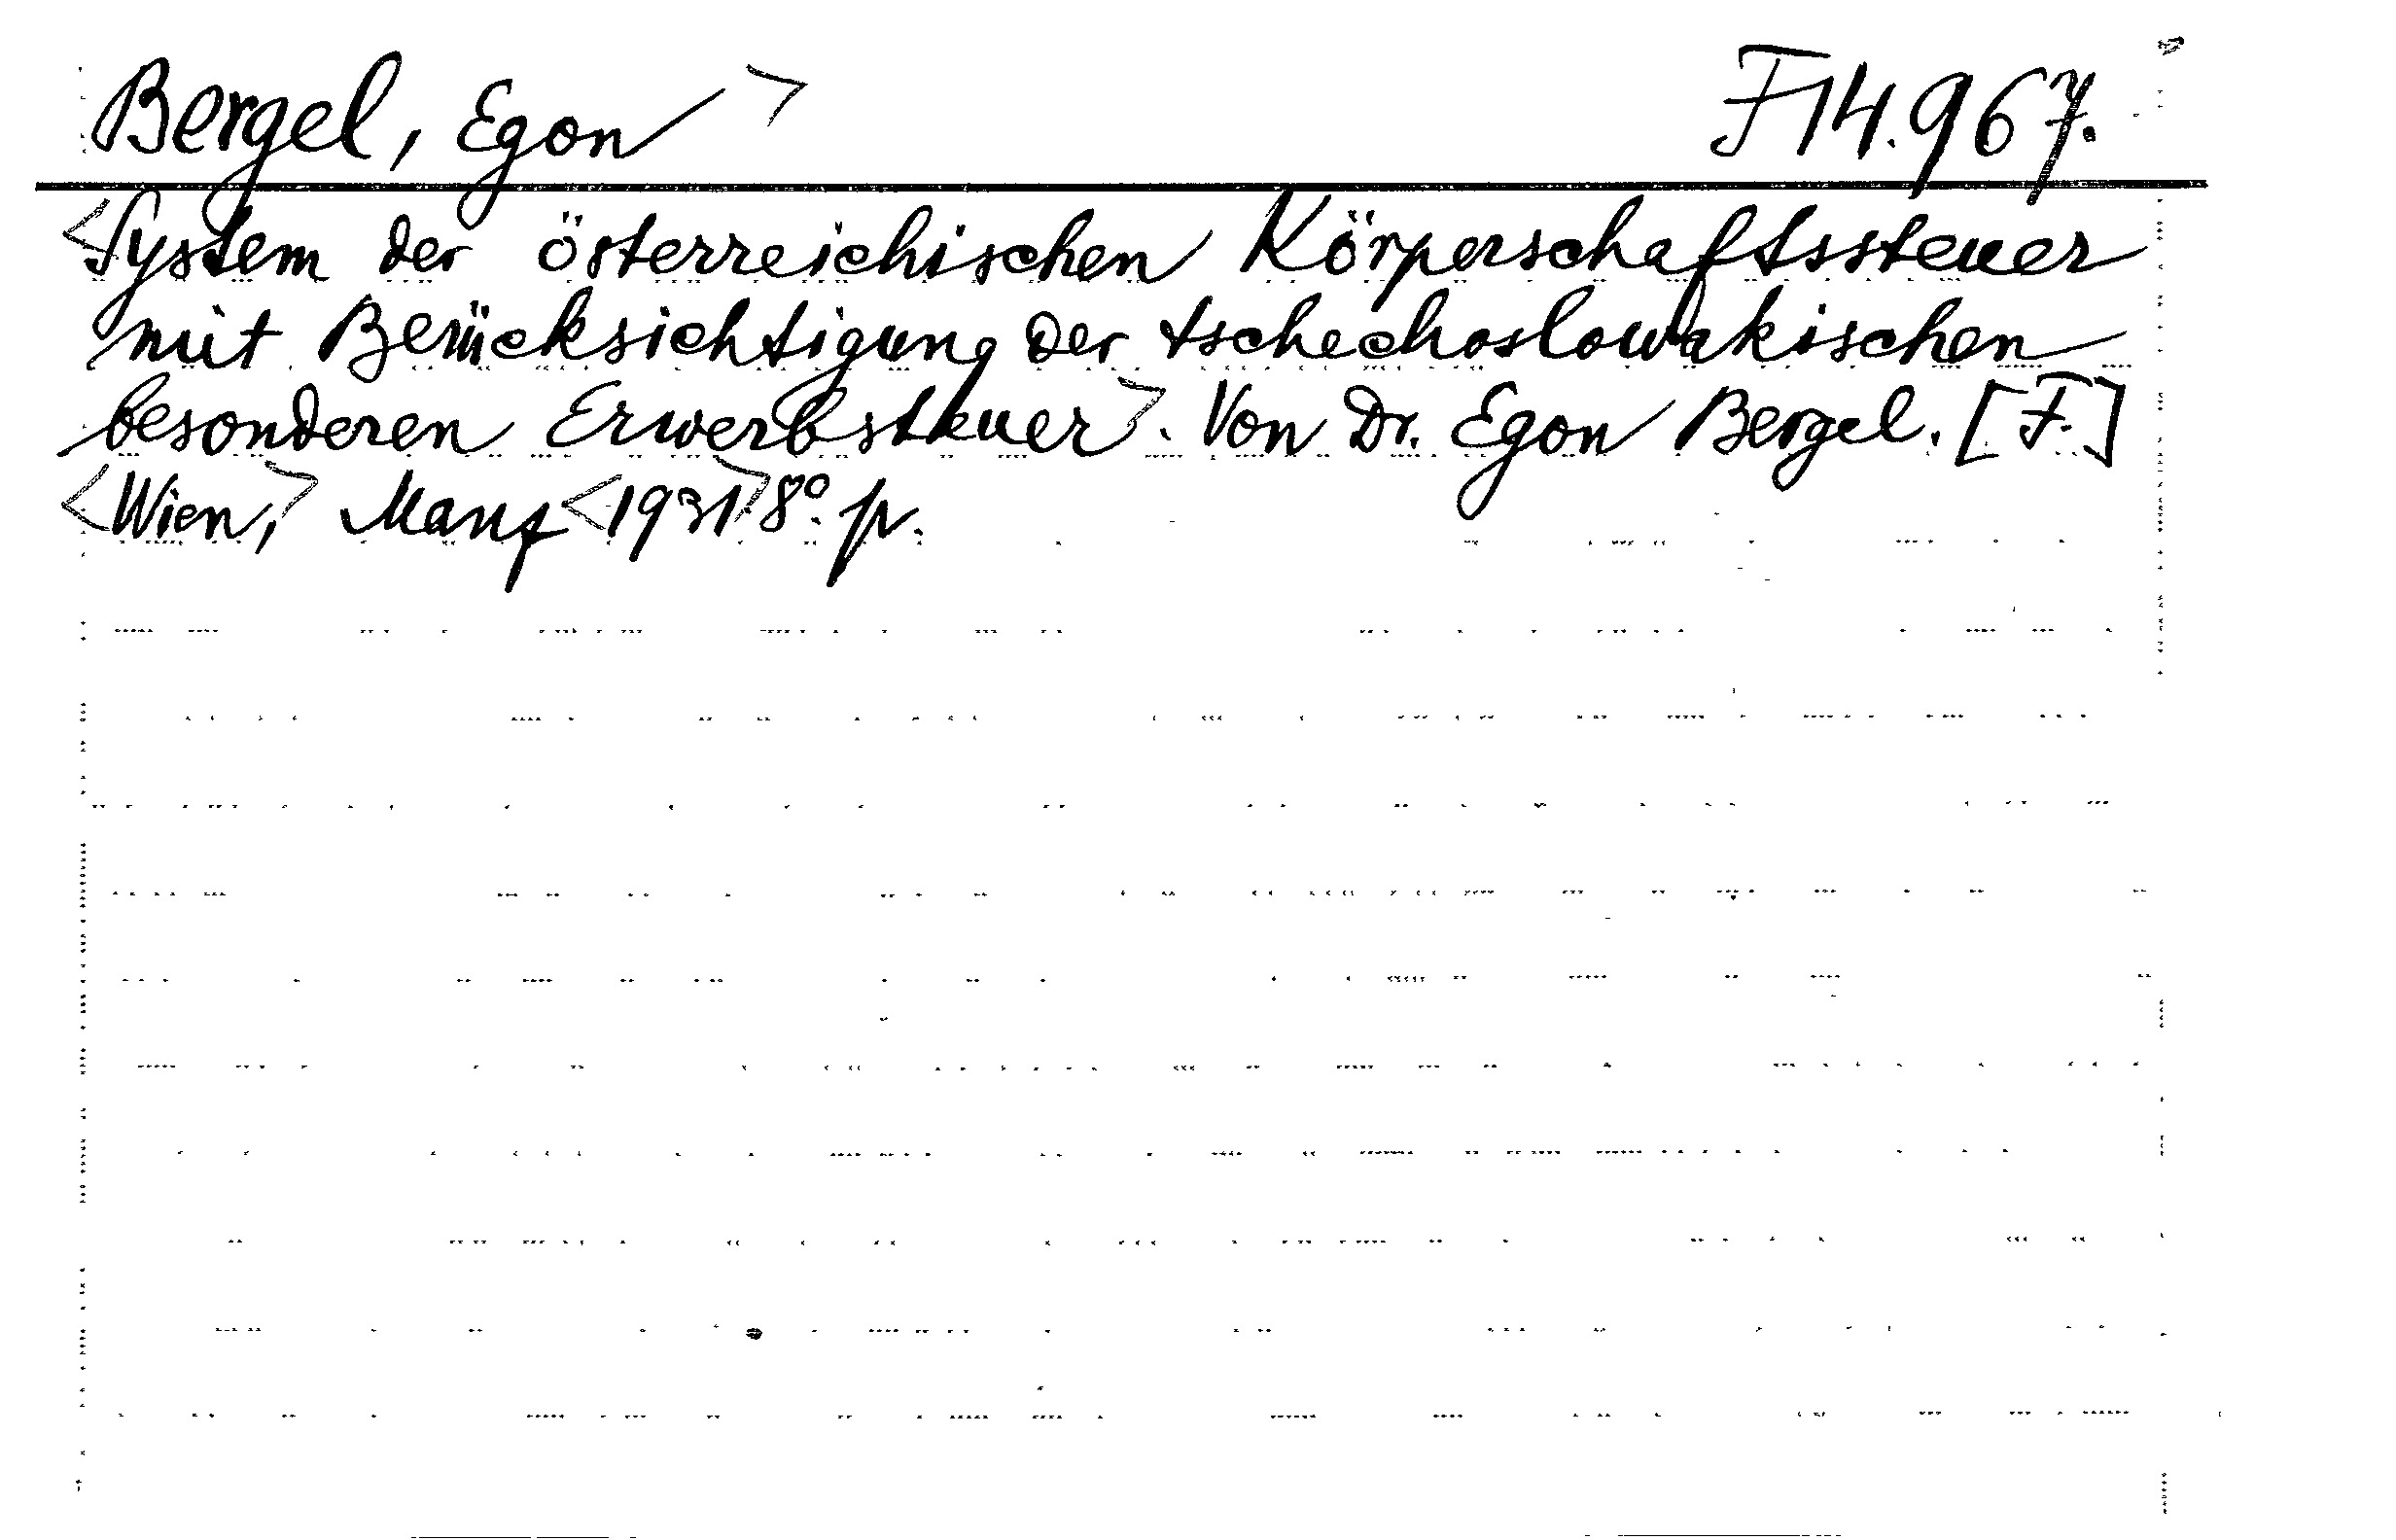 Bergel, Egon > F 14.967.
<System der österreichischen Körperschaftssteuer
mit Berücksichtigung der tschechoslowakischen
besonderen Erwerbsteuer>. Von Dr. Egon Bergel. [F.]
<Wien,> Manz <1931> 8°. p.